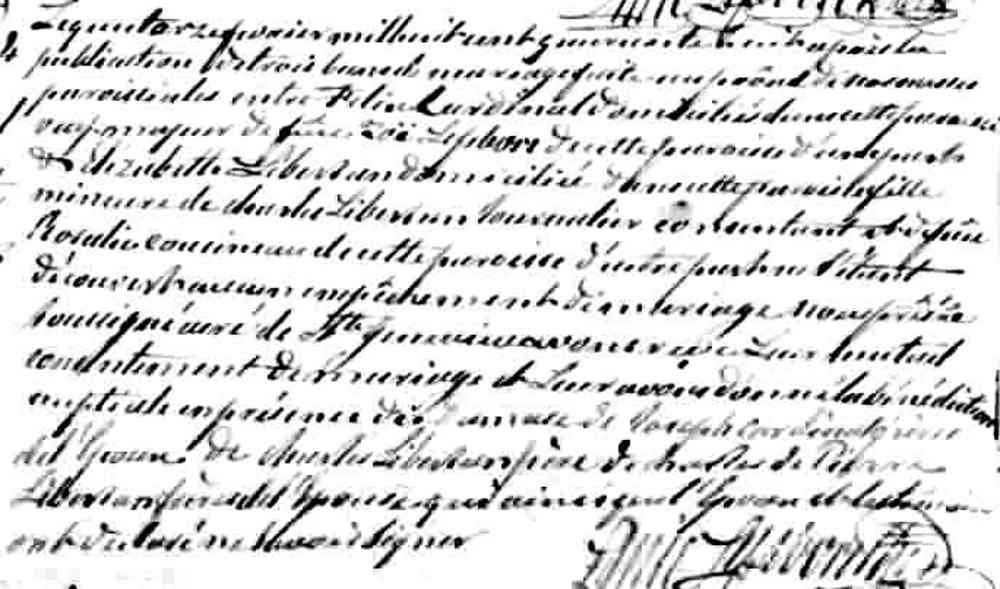 Le quatorze fevrier mil huit cent quarante huit après la
publication de trois bans de mariage faite au prône de nos messes
paroissiales entre Felix Cardinal domicilié dans cette paroisse
veuf majeur de feue Zoé Lefebvre de cette paroisse d'une part
& Elizabeth Libersan domiciliée dans cette paroisse fille
mineure de Charles Libersan Journalier consentant et de feue
Rosalie Cousineau de cette paroisse d'autre part ne s'étant
découvert aucun empêchement de mariage nous prêtre
soussigné curé de Ste Genevieve avons reçu Leur mutuel
consentement de mariage et Leur avons donné la bénédiction
nuptiale en présence de Joseph Cardinal
de l'Epoux de Charles Libersan père de de Pierre
Libersan frère de l'Epouse qui ainsi que l'Epoux et
ont declaré ne savoir signer